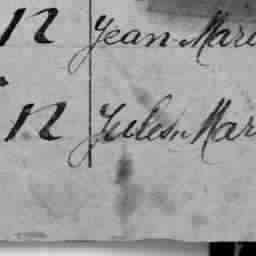 12 Jean Mari
12 Jules Mar